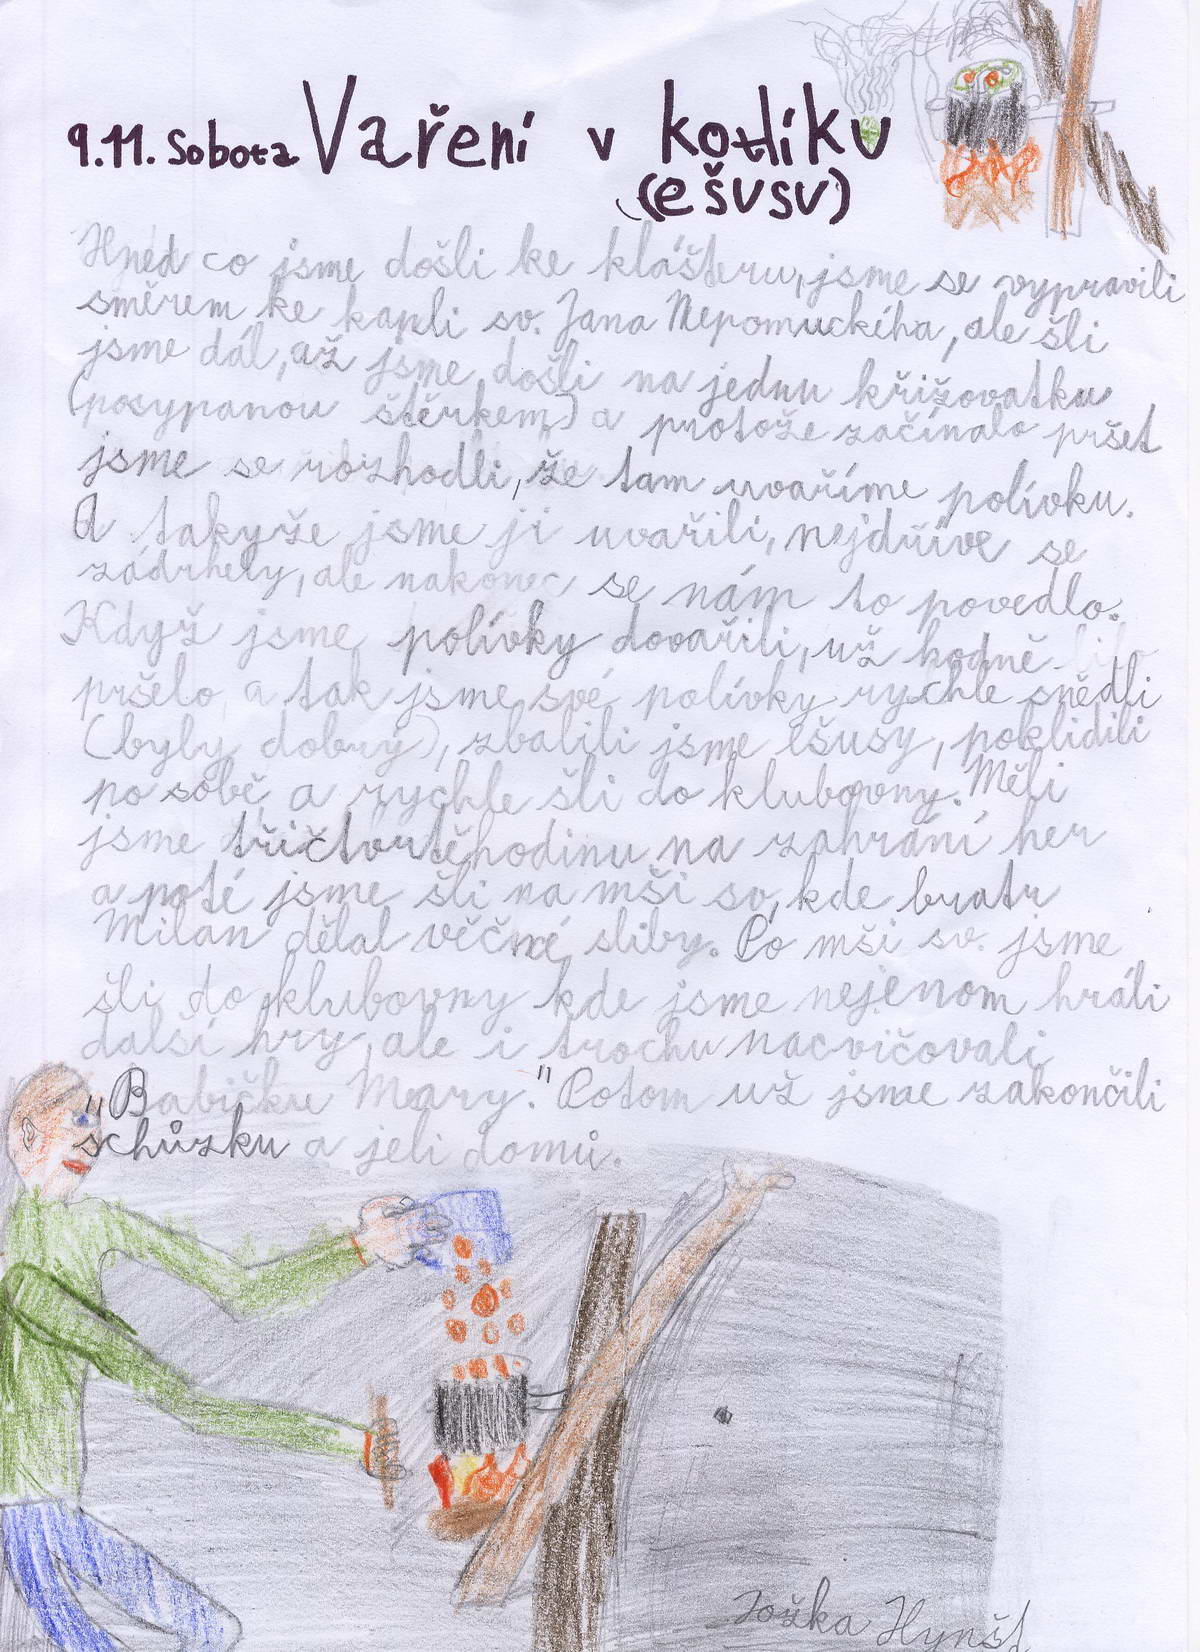 9.11. Sobota Vaření v kotlíku
(ešusu)
Hned co jsme došli ke klášteru, jsme se vypravili
směrem ke kapli sv. Jana Nepomuckího, ale šli
jsme dál, až jsme došli na jednu křižovatku
(posypanou štěrkem) a protože začínalo pršet
jsme se rozhodli, že tam uvaříme polívku.
A takyže jsme ji uvařili, nejdříve se
zádrhely, ale nakonec se nám to povedlo.
Když jsme polívky dovařili, už hodně
pršelo a tak jsme své polívky rychle snědli
(byly dobrý), zbalili jsme ešusy, poklidili
po sobě a rychle šli do klubovny. Měli
jsme třičtvrtěhodinu na zahrání her
a poté jsme šli na mši sv, kde bratr
Milan dělal věčné sliby. Po mši sv. jsme
šli do klubovny kde jsme nejenom hráli
další hry, ale i trochu nacvičovali
"Babičku Mary." Potom už jsme zakončili
schůzku a jeli domů.
Joška Hynšt